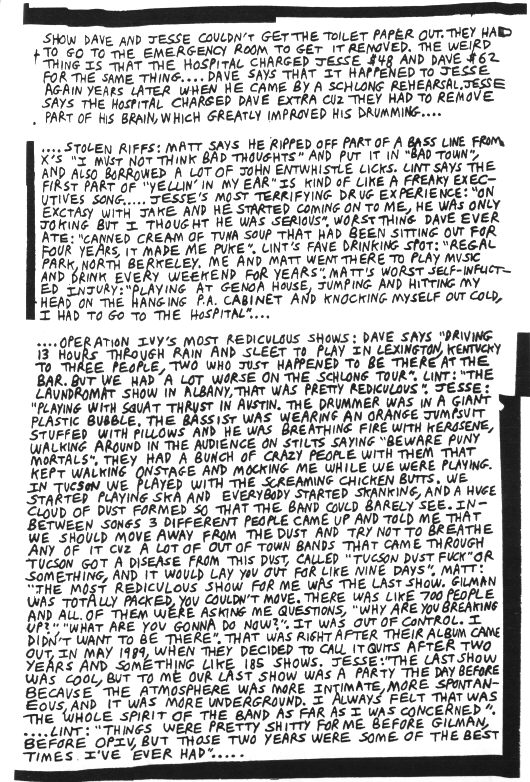 SHOW DAVE AND JESSE COULDN'T GET THE TOILET PAPER OUT. THEY HAD
TO GO TO THE EMERGENCY ROOM TO GET IT REMOVED. THE WEIRD
THING IS THAT THE HOSPITAL CHARGED JESSE $48 AND DAVE $62
FOR THE SAME THING.... DAVE SAYS THAT IT HAPPENED TO JESSE
AGAIN YEARS LATER WHEN HE CAME BY A SCHLONG REHEARSAL. JESSE
SAYS THE HOSPITAL CHARGED DAVE EXTRA CUZ THEY HAD TO REMOVE
PART OF HIS BRAIN, WHICH GREATLY IMPROVED HIS DRUMMING....
....STOLEN RIFFS: MATT SAYS HE RIPPED OFF PART OF A BASS LINE FROM
X'S "I MUST NOT THINK BAD THOUGHTS" AND PUT IT IN "BAD TOWN",
AND ALSO BORROWED A LOT OF JOHN ENTWHISTLE LICKS. LINT SAYS THE
FIRST PART OF "YELLIN' IN MY EAR" IS KIND OF LIKE A FREAKY EXEC-
UTIVES SONG..... JESSE'S MOST TERRIFYING DRUG EXPERIENCE: "ON
EXCTASY WITH JAKE AND HE STARTED COMING ON TO ME, HE WAS ONLY
JOKING BUT I THOUGHT HE WAS SERIOUS". WORST THING DAVE EVER
ATE: "CANNED CREAM OF TUNA SOUP THAT HAD BEEN SITTING OUT FOR
FOUR YEARS, IT MADE ME PUKE". LINT'S FAVE DRINKING SPOT: "REGAL
PARK, NORTH BERKELEY. ME AND MATT WENT THERE TO PLAY MUSIC
AND DRINK EVERY WEEKEND FOR YEARS". MATT'S WORST SELF-INFLICT-
ED INJURY: "PLAYING AT GENOA HOUSE, JUMPING AND HITTING MY
HEAD ON THE HANGING P.A. CABINET AND KNOCKING MYSELF OUT COLD,
I HAD TO GO TO THE HOSPITAL"....
....OPERATION IVY'S MOST REDICULOUS SHOWS: DAVE SAYS "DRIVING
13 HOURS THROUGH RAIN AND SLEET TO PLAY IN LEXINGTON, KENTUCKY
TO THREE PEOPLE, TWO WHO JUST HAPPENED TO BE THERE AT THE
BAR. BUT WE HAD A LOT WORSE ON THE SCHLONG TOUR". LINT: "THE
LAUNDROMAT SHOW IN ALBANY, THAT WAS PRETTY REDICULOUS". JESSE:
"PLAYING WITH SQUAT THRUST IN AUSTIN. THE DRUMMER WAS IN A GIANT
PLASTIC BUBBLE. THE BASSIST WAS WEARING AN ORANGE JUMPSUIT
STUFFED WITH PILLOWS AND HE WAS BREATHING FIRE WITH KEROSENE,
WALKING AROUND IN THE AUDIENCE ON STILTS SAYING "BEWARE PUNY
MORTALS". THEY HAD A BUNCH OF CRAZY PEOPLE WITH THEM THAT
KEPT WALKING ONSTAGE AND MOCKING ME WHILE WE WERE PLAYING.
IN TUCSON WE PLAYED WITH THE SCREAMING CHICKEN BUTTS. WE
STARTED PLAYING SKA AND EVERYBODY STARTED SKANKING, AND A HUGE
CLOUD OF DUST FORMED SO THAT THE BAND COULD BARELY SEE. IN-
BETWEEN SONGS 3 DIFFERENT PEOPLE CAME UP AND TOLD ME THAT
WE SHOULD MOVE AWAY FROM THE DUST AND TRY NOT TO BREATHE
ANY OF IT CUZ A LOT OF OUT OF TOWN BANDS THAT CAME THROUGH
TUCSON GOT A DISEASE FROM THIS DUST, CALLED "TUCSON DUST FUCK" OR
SOMETHING, AND IT WOULD LAY YOU OUT FOR LIKE NINE DAYS". MATT:
"THE MOST REDICULOUS SHOW FOR ME WAS THE LAST SHOW. GILMAN
WAS TOTALLY PACKED, YOU COULDN'T MOVE. THERE WAS LIKE 700 PEOPLE
AND ALL OF THEM WERE ASKING ME QUESTIONS, "WHY ARE YOU BREAKING
UP?" "WHAT ARE YOU GONNA DO NOW?". IT WAS OUT OF CONTROL. I
DIDN'T WANT TO BE THERE". THAT WAS RIGHT AFTER THEIR ALBUM CAME
OUT, IN MAY 1989, WHEN THEY DECIDED TO CALL IT QUITS AFTER TWO
YEARS AND SOMETHING LIKE 185 SHOWS. JESSE: "THE LAST SHOW
WAS COOL, BUT TO ME OUR LAST SHOW WAS A PARTY THE DAY BEFORE
BECAUSE THE ATMOSPHERE WAS MORE INTIMATE, MORE SPONTAN-
EOUS, AND IT WAS MORE UNDERGROUND. I ALWAYS FELT THAT WAS
THE WHOLE SPIRIT OF THE BAND AS FAR AS I WAS CONCERNED".
....LINT: "THINGS WERE PRETTY SHITTY FOR ME BEFORE GILMAN,
BEFORE OPIV, BUT THOSE TWO YEARS WERE SOME OF THE BEST
TIMES I'VE EVER HAD".....